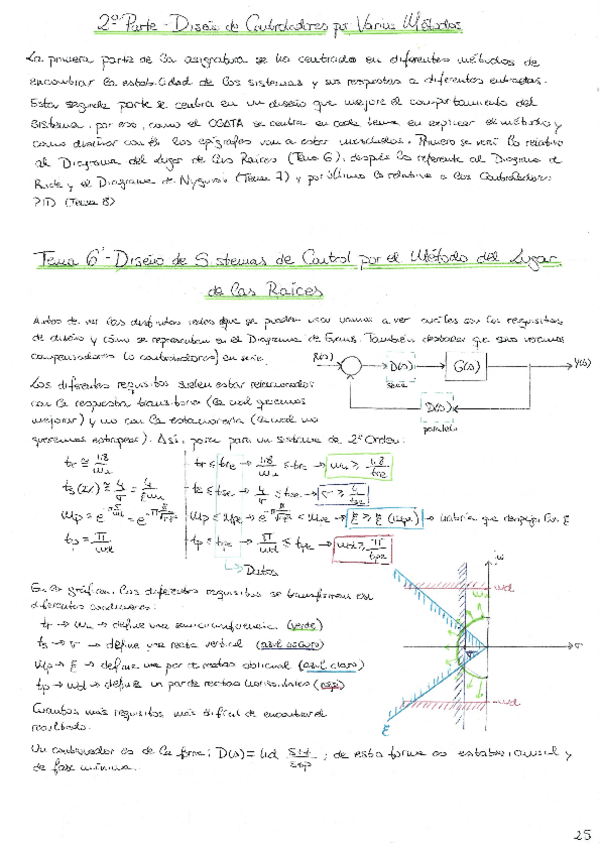 2ª Parte - Diseño de Controladores por Varios Métodos
La primera parte de la asignatura se ha centrado en diferentes métodos de
encontrar la estabilidad de los sistemas y sus respuestas a diferentes entradas.
Esta segunda parte se centra en un diseño que mejore el comportamiento del
sistema, por eso, como el OGATA se centra en cada tema en explicar el método y
como diseñar con él los epígrafes van a estar mezclados. Primero se verá lo relativo
al Diagrama del Lugar de las Raíces (Tema 6), después lo referente al Diagrama de
Bode y el Diagrama de Nyquist (Tema 7) y por último lo relativo a los Controladores
PID (Tema 8)
Tema 6 - Diseño de Sistemas de Control por el Método del Lugar
de las Raíces
Antes de ver las distintas redes que se pueden usar vamos a ver cuáles son los requisitos
de diseño y cómo se representan en el Diagrama de Evans. También destacar que solo veremos
compensadores (o controladores) en serie.
R(s) D(s) G(s) Y(s)
serie
D(s)
paralelo
Los diferentes requisitos suelen estar relacionados
con la respuesta transitoria (la cual queremos
mejorar) y no con la estacionaria (la cual no
queremos estropear). Así, para un sistema de 2º Orden:
tr ≅ 1.8/ωn tr ≤ tre → 1.8/ωn ≤ tre → ωn ≥ 1.8/tre
ts(2%) ≅ 4/σ = 4/ξωn ts ≤ tse → 4/σ ≤ tse → σ ≥ 4/tse
Mp ≤ Mpe → ξ ≥ ξ(Mpe) → habría que despejar la ξ
tp = π/ωd tp ≤ tpe → π/ωd ≤ tpe → ωd ≥ π/tpe
Datos
En la gráfica, los diferentes requisitos se transforman en
diferentes condiciones:
tr → ωn → define una semicircunferencia (verde)
ts → σ → define una recta vertical (azul oscuro)
Mp → ξ → define un par de rectas oblicuas (azul claro)
tp → ωd → define un par de rectas horizontales (rojo)
Cuantos más requisitos más difícil de encontrar el
resultado.
jω
ωd
ωn
σ
-ωd
ξ
Un controlador es de la forma: D(s) = kd (s+z)/(s+p); de esta forma es estable, causal y
de fase mínima.
25